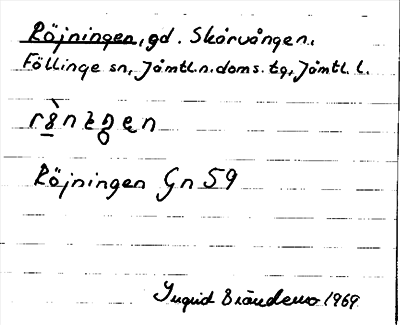 Röjningen, gd. Skärvången.
Föllinge sn, Jämtl.n.doms.tg, Jämtl. l.
Röjningen Gn 59
Ingrid Brändemo 1969